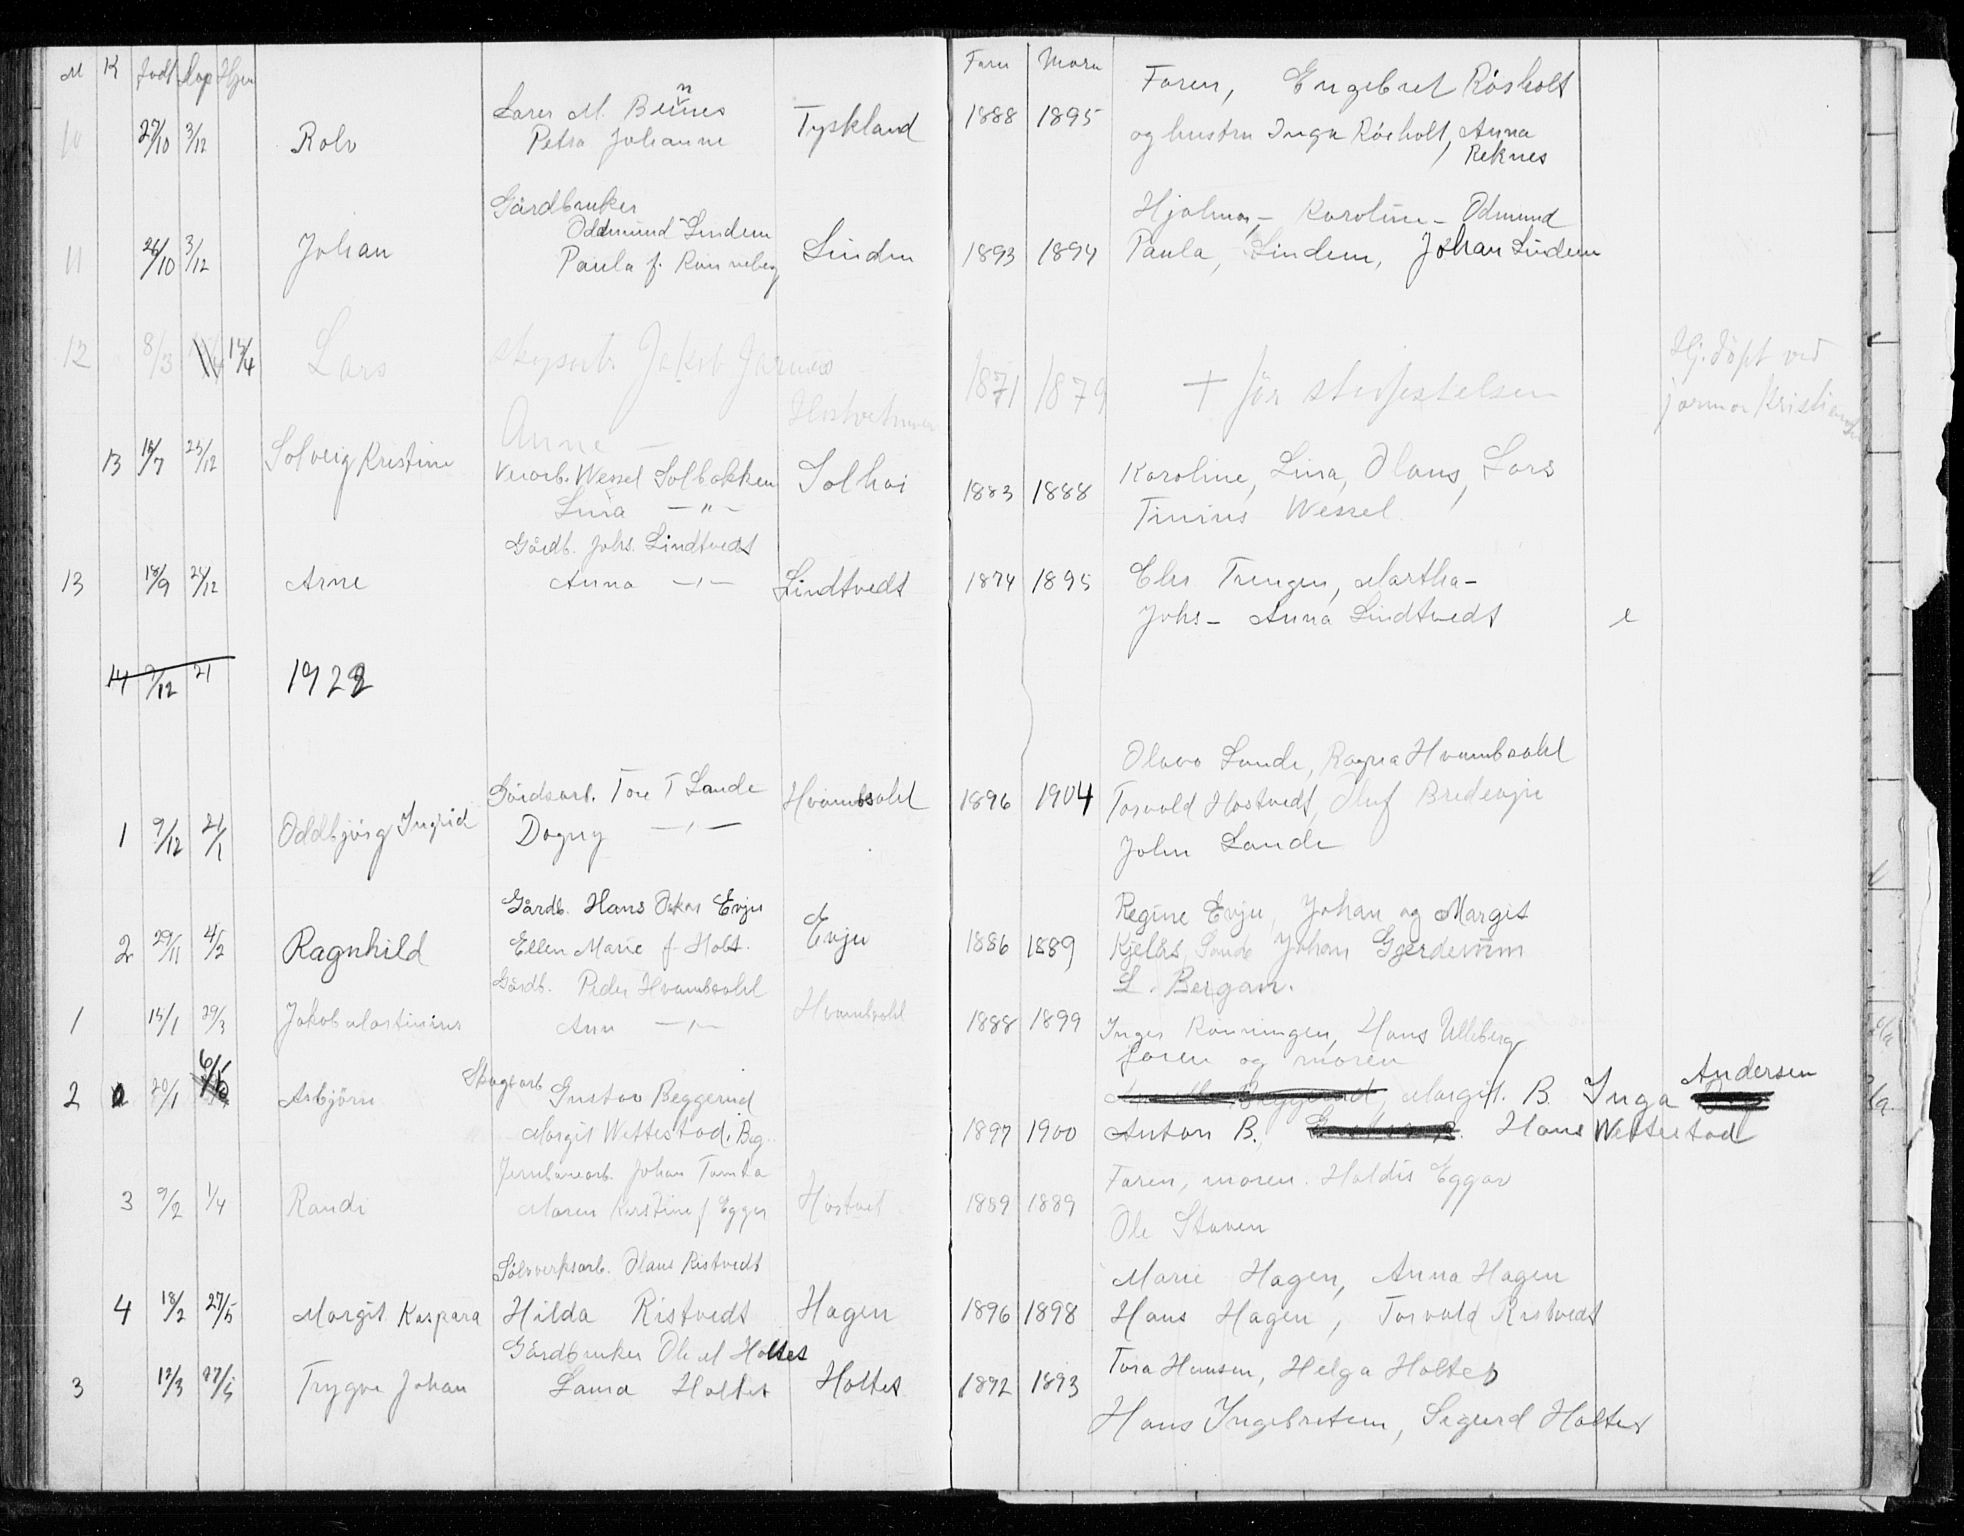 M K Födt Dåp Hjem Faren Moren
Faren, Engebret Røsholt
Lars M. Bunes
10 27/10 3/12 Rolv Petra Johanne Tyskland 1888 1895 og hustru Inga Røsholt, Anna
Reknes
Gårdbruker
Hjalmar - Karoline - Odmund
Oddmund Lindem
11 26/10 3/12 Johan Paula f. Rønneberg Lindem 1893 1894 Paula, Lindem, Johan Lindem
12 8/3 14/4 Lars Jakob 1871 1879 † før stadfestelsen Hj. døpt ved
jormor
Anne
13 16/7 25/12 Solveig Kristine Verarb. Wessel Solbakken Solhai 1883 1888 Karoline, Lina, Olaus, Lars
Lina -"- Tinius Wessel.
Gårdb. Johs. Lindtvedt
13 18/9 26/12 Arne Anna -"- Lindtvedt 1874 1895 Else Trengen, Martha -
Johs - Anna Lindtvedt
14 9/12 21 1922
Olava Lande, Ragna Hvambsahl
Gårdsarb. Tore T Lande Hvambsahl 1896 1904 Torvald Hostvedt, Oluf Bredevju
1 9/12 21/1 Oddbjørg Ingrid Dagny -"- John Lande
Gårdb. Hans Oskar Evju Regine Evju, Johan og Margit
2 29/11 4/2 Ragnhild Ellen Marie f. Holt. Evju 1886 1889 Kjelås, Lande Johan Gjerderum
L. Bergan.
Gårdb. Peder Hvambsahl
1 15/1 29/3 Jakob Martinius Ann -"- Hvambsahl 1888 1899 Inger Rønningen, Hans Ulleberg
faren og moren
2 20/1 6/5 Asbjørn Skogsarb Gustav Beggerud Margit. B. Inga Andersen
Margit Wettestad, Beg. 1897 1900 Anton B. Hans Wettestad
Jernbanearb. Johan Tomta Faren, moren. Haldis Eggar
3 9/2 1/4 Randi Maren Kirstine f Egger Hostvet 1889 1889
Ole Staven
Sølvverksarb. Olaus Ristvedt Marie Hagen, Anna Hagen
4 18/2 27/5 Margit Kaspara Hilda Ristvedt Hagen 1896 1898 Hans Hagen, Torvald Ristvedt
Gårdbruker Ole M Holtet Tora Hansen, Helga Holtet
3 12/3 27/5 Trygve Johan Laura Holtet Holtet 1892 1893
Hans Ingebretsen, Sigurd Holtet